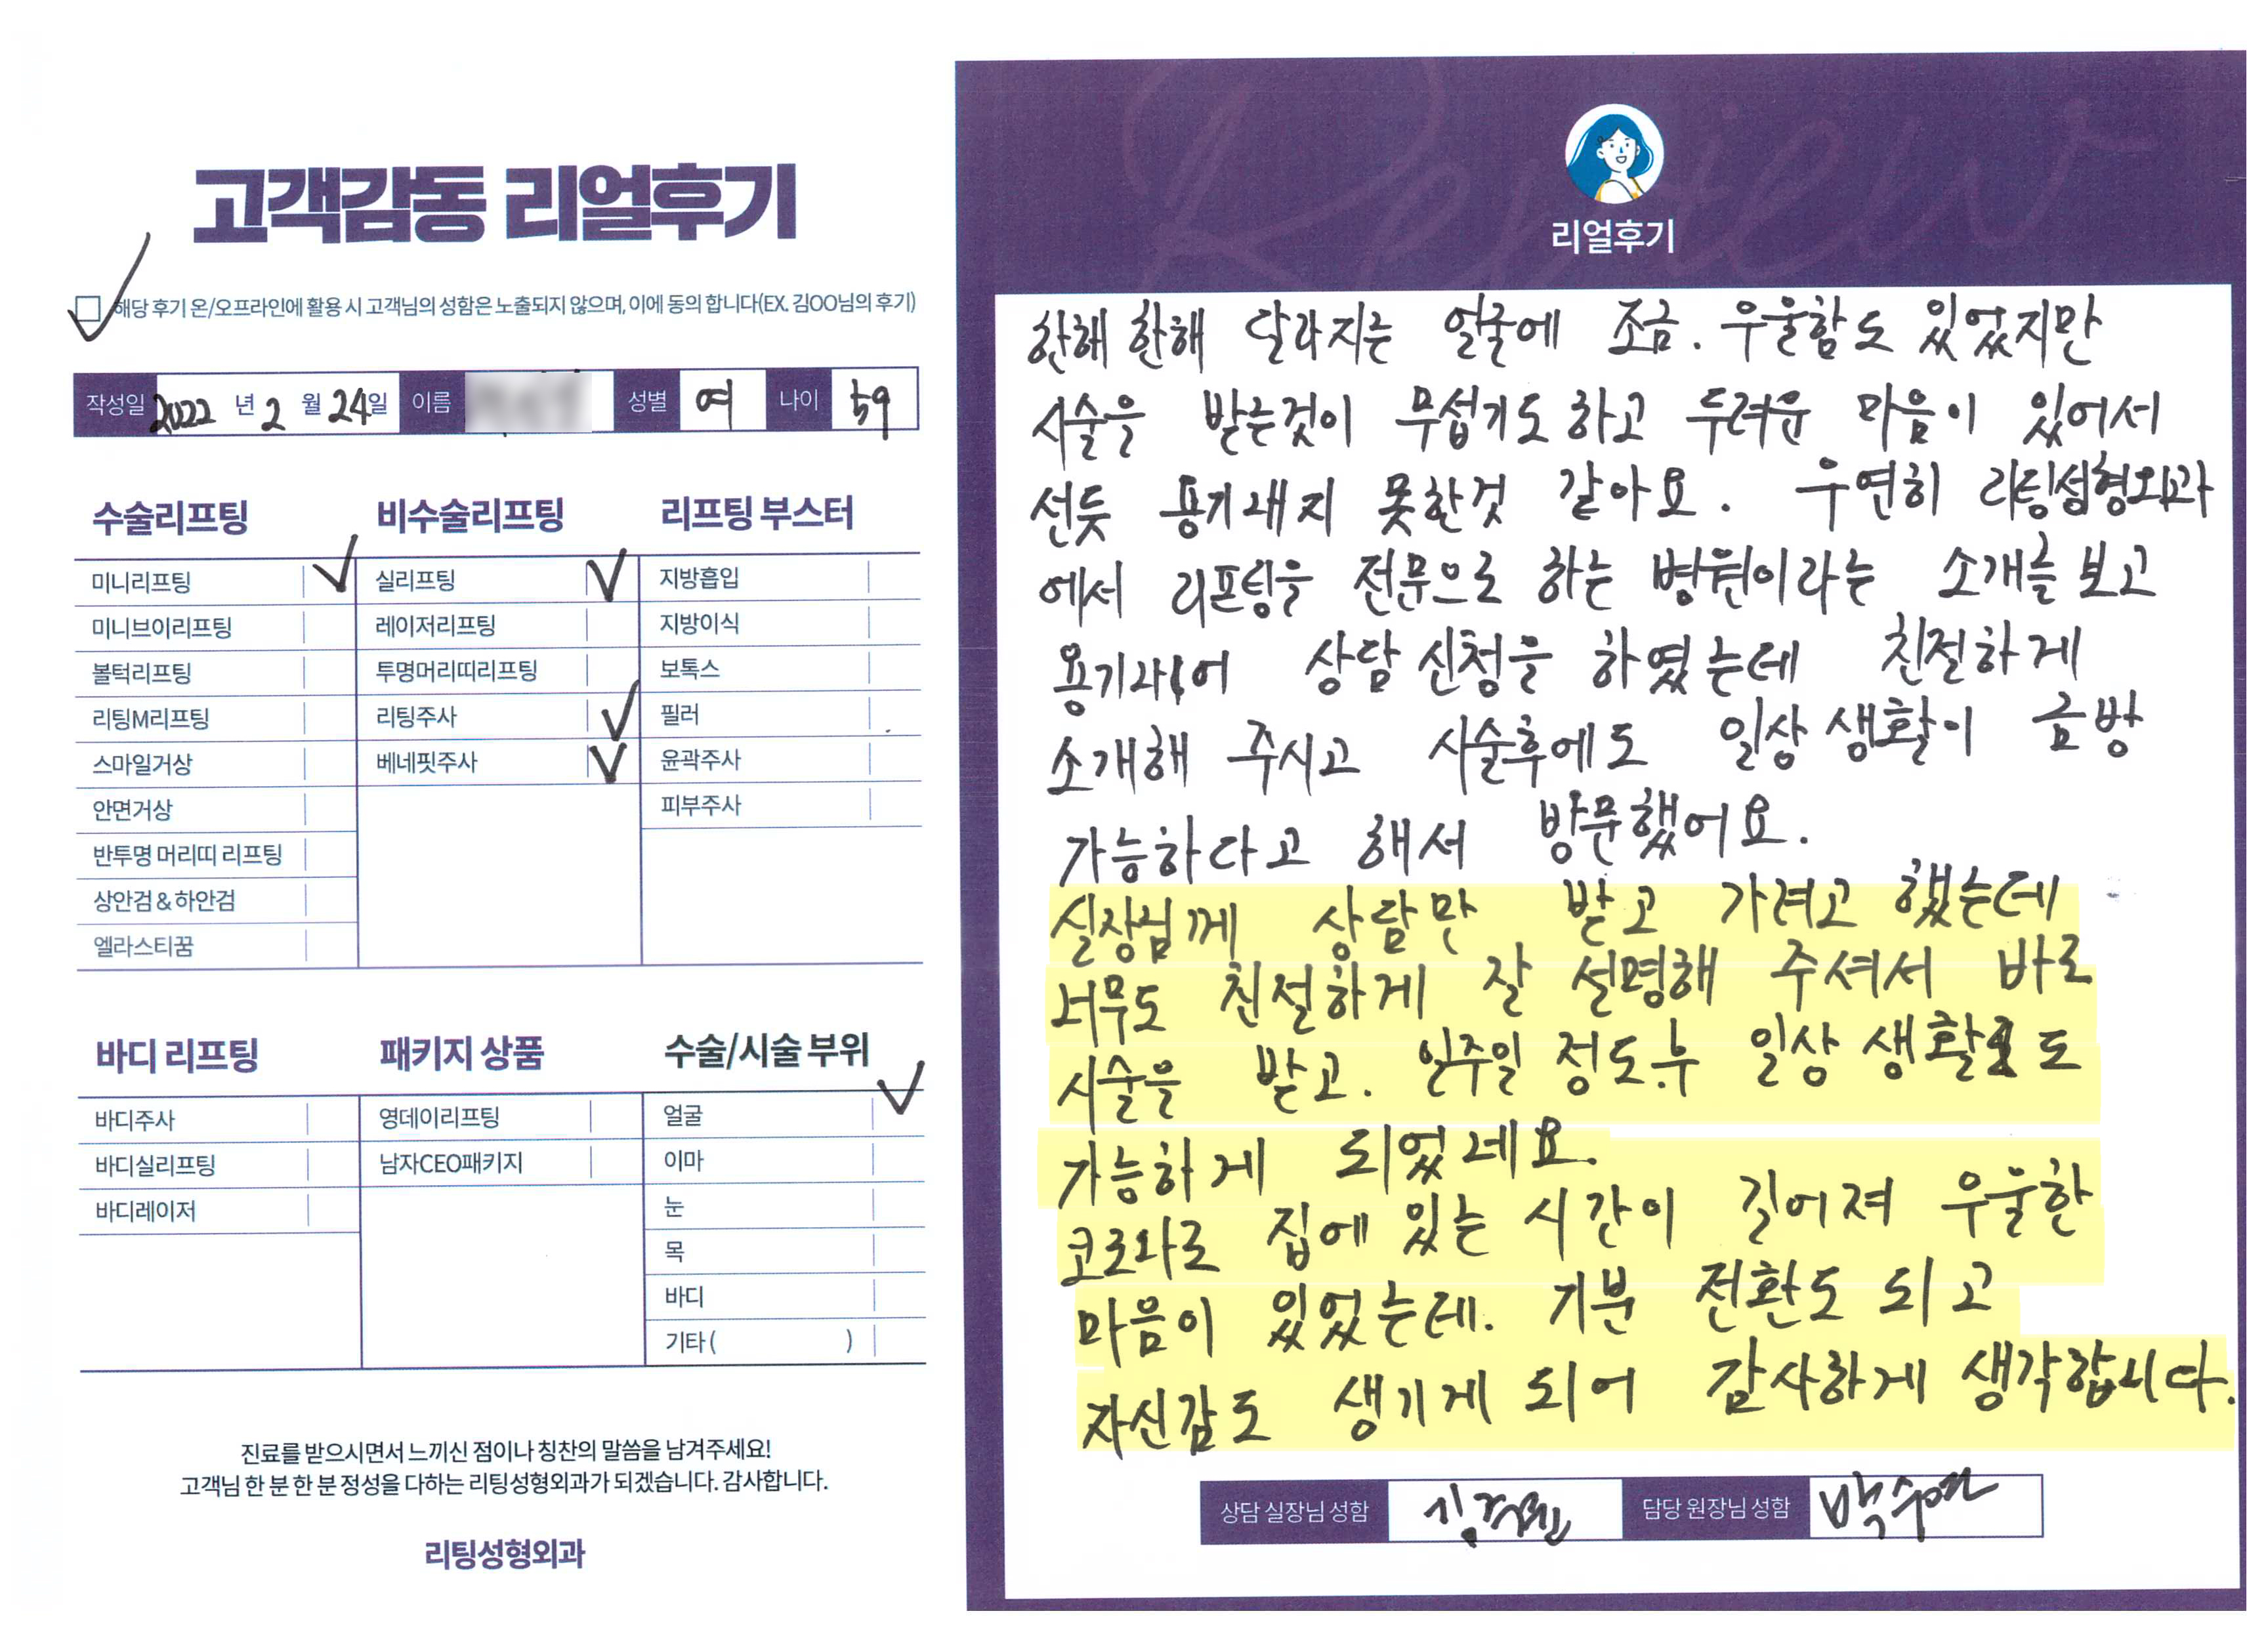 고객감동 리얼후기
해당 후기 온/오프라인에 활용 시 고객님의 성함은 노출되지 않으며, 이에 동의 합니다(EX. 김OO님의 후기)
작성일 2022 년 2 월 24일 이름 성별 여 나이 59
수술리프팅
미니리프팅
미니브이리프팅
볼턱리프팅
리팅M리프팅
스마일거상
안면거상
반투명 머리띠 리프팅
상안검 & 하안검
엘라스티꿈
비수술리프팅
실리프팅
레이저리프팅
투명머리띠리프팅
리팅주사
베네핏주사
리프팅 부스터
지방흡입
지방이식
보톡스
필러
윤곽주사
피부주사
바디 리프팅
바디주사
바디실리프팅
바디레이저
패키지 상품
영데이리프팅
남자CEO패키지
수술/시술 부위
얼굴
이마
눈
목
바디
기타 ( )
진료를 받으시면서 느끼신 점이나 칭찬의 말씀을 남겨주세요!
고객님 한 분 한 분 정성을 다하는 리팅성형외과가 되겠습니다. 감사합니다.
리팅성형외과
Review
리얼후기
한해 한해 달라지는 얼굴에 조금. 우울함도 있었지만
시술을 받는것이 무섭기도 하고 두려운 마음이 있어서
선듯 용기내지 못한것 같아요. 우연히 리팅성형외과
에서 리프팅을 전문으로 하는 병원이라는 소개를 보고
용기내어 상담 신청을 하였는데 친절하게
소개해 주시고 시술후에도 일상 생활이 금방
가능하다고 해서 방문했어요.
실장님께 상담만 받고 가려고 했는데
너무도 친절하게 잘 설명해 주셔서 바로
시술을 받고. 일주일 정도후 일상 생활도
가능하게 되었네요.
코로나로 집에 있는 시간이 길어져 우울한
마음이 있었는데. 기분 전환도 되고
자신감도 생기게 되어 감사하게 생각합니다.
상담 실장님 성함 담당 원장님 성함